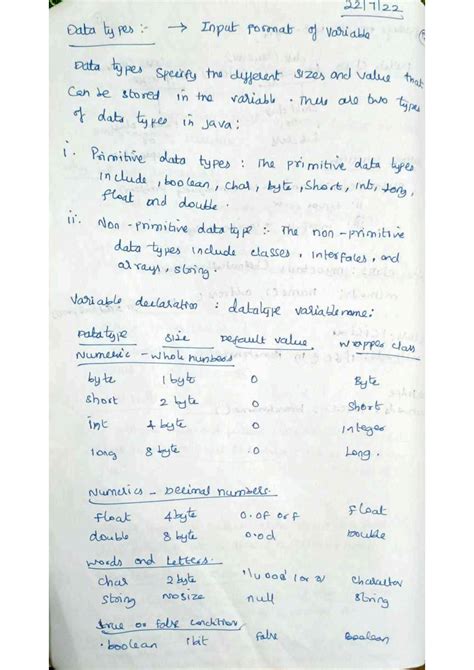 22/7/22
Data types :- → Input Format of Variable
Data types Specify the different sizes and value that
Can be stored in the variable. There are two types
of data types in java:
i. Primitive data types : The primitive data types
include, boolean, char, byte, Short, Int, long,
float and double.
ii. Non-primitive data type :- The non-primitive
data types include classes, interfaces, and
arrays, string.
Variable declaration : datatype variable name;
Datatype Size Default value Wrapper class
Numeric - whole numbers
byte 1 byte 0 Byte
Short 2 byte 0 Short
int 4 byte 0 Integer
long 8 byte 0 Long.
Numerics - Decimal numbers.
float 4 byte 0.0f or f Float
double 8 byte 0.0d Double
words and Letters.
char 2 byte character
string no size null String
true or false condition
boolean 1 bit false Boolean